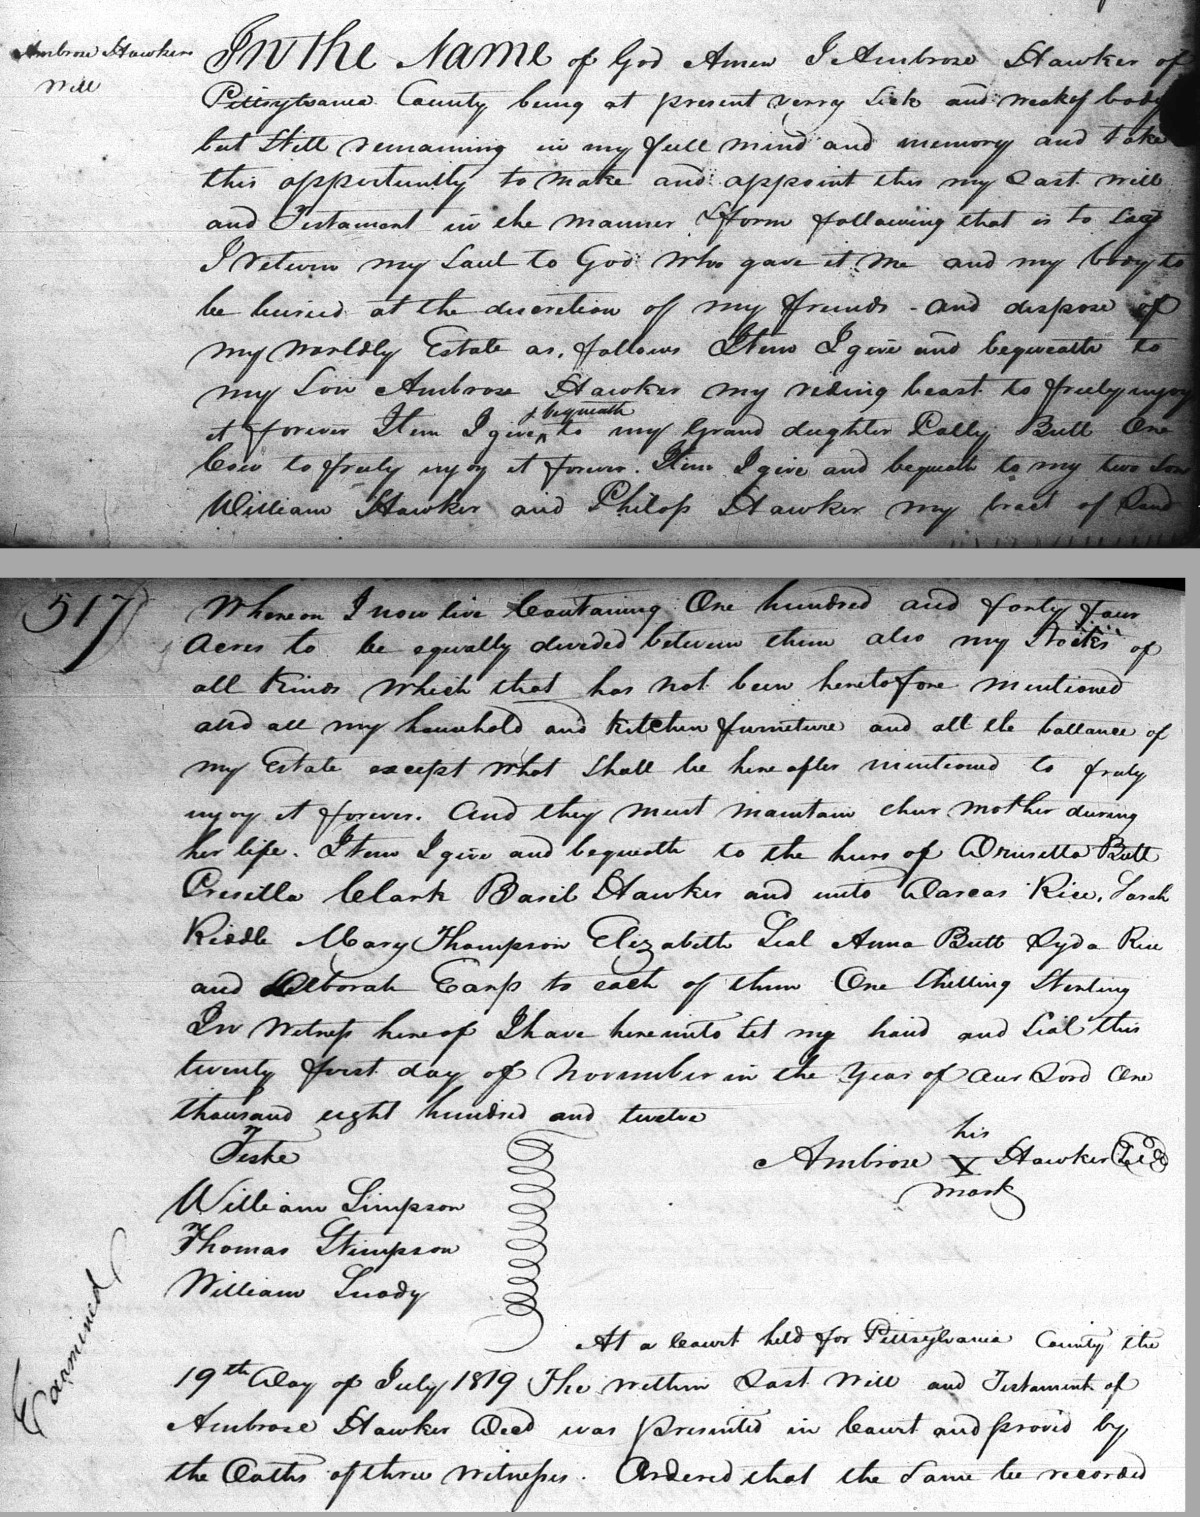 Ambrose Hawkers
Will
In the Name of God Amen I Ambrose Hawker of
Pittsylvania County being at present verry Sick and weak of body
but Still remaining in my full mind and memory and take
this oppertunity to make and appoint this my Last will
and Testament in the manner & form following that is to say
I return my Saul to God who gave it me and my body to
be buried at the discretion of my friends - and dispose of
my worldly Estate as, follows Item I give and bequeath to
my Son Ambrose Hawker my riding beast to freely injoy
& bequeath
it forever Item I give ^ to my Grand daughter Polly Butt One
Cow to freely injoy it forever. Item I give and bequeath to my two Sons
William Hawker and Philop Hawker my tract of Land
517
Whereon I now live Containing One hundred and forty four
Acres to be equally divided between them also my Stocks of
all Kinds which that has not been heretofore mentioned
and all my household and kitchen furniture and all the ballance of
my Estate except what Shall be here after mentioned to fruly
injoy it forever. And they must maintain thur mother during
her life. Item I give and bequeath to the hurs of Drusilla Butt
Presilla Clark Basil Hawker and unto Darcas Rice, Sarah
Riddle Mary Thompson Elizabeth Seal Anna Butt Lyda Rice
and Deborah Earp to each of them One Shilling Sterling
In Witness here of I have here unto Set my hand and Seal this
twenty first day of November in the Year of our Lord One
thousand eight hundred and twelve
Teste
his
Ambrose X Hawker Seal
mark
William Simpson
Thomas Stimpson
William Snody
Examined
At a Court held for Pittsylvania County the
19th Day of July 1819 The within Last Will and Testament of
Ambrose Hawker Decd was presented in Court and proved by
the Oaths of three witnesses. Ordered that the Same be recorded